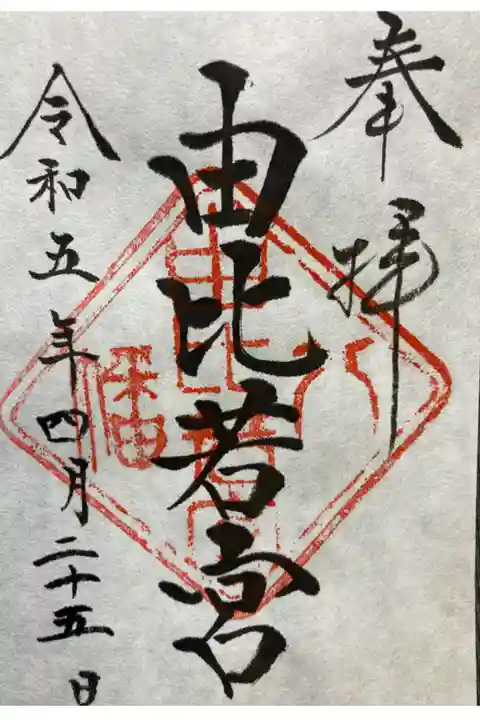 奉拝
由比若宮
八幡
令和五年四月二十五日